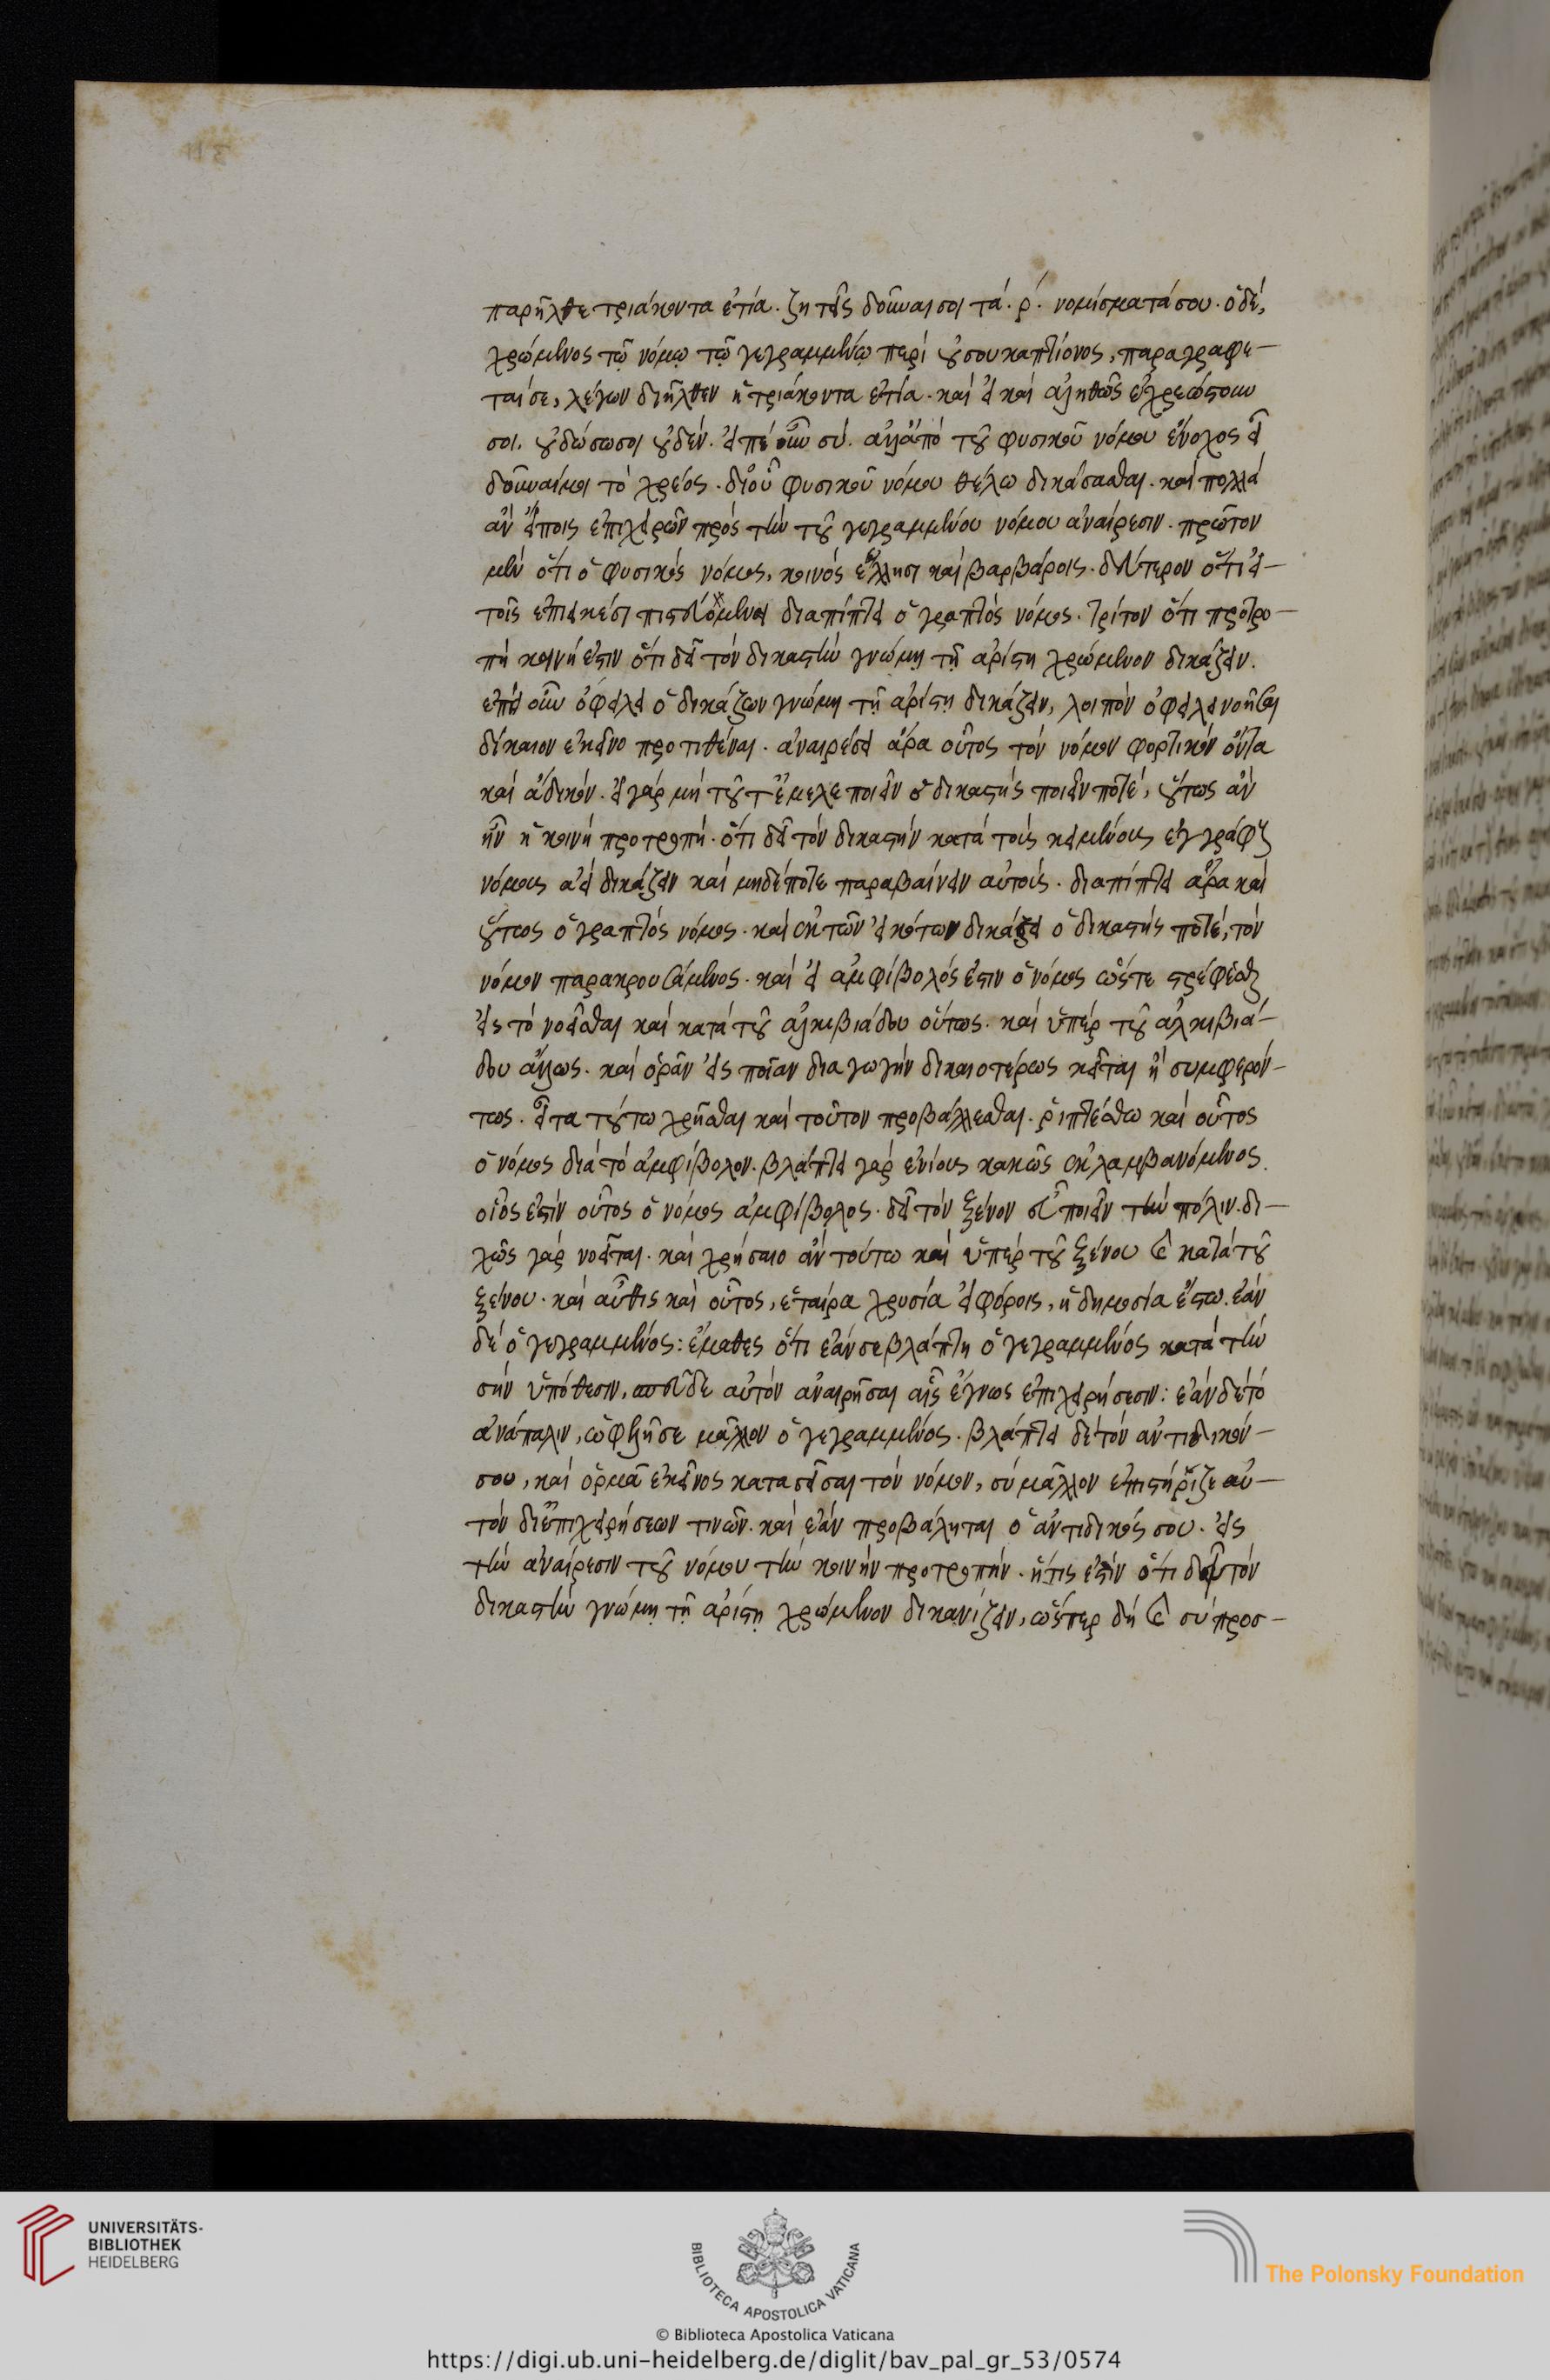 παρῆλθε τριάκοντα ἐτία. ζητεῖς δοῦναι σοι τά. ρ΄. νομίσματά σου. ὁ δέ,
χρώμενος τῷ νόμῳ τῷ γεγραμμένῳ περί οὐσουκαπτίονος, παραγραφε-
ταί σε, λέγων διῆλθεν ἡ τριάκοντα ἐτία. καί εἰ καί ἀληθῶς ἐχρεώστουν
σοι. οὐ δώσω σοι οὐδέν. εἰπέ οὖν σύ. ἀλλ' ἀπό τοῦ φυσικοῦ νόμου ἔνοχος εἶ
δοῦναί μοι τὸ χρέος. δι' οὗ φυσικοῦ νόμου θέλω δικάσασθαι. καί πολλά
ἂν εἴποις ἐπιχειρῶν πρός τὴν τοῦ γεγραμμένου νόμου ἀναίρεσιν. πρῶτον
μέν ὅτι ὁ φυσικός νόμος, κοινός ἕλλησι καί βαρβάροις. δεύτερον ὅτι εἰ-
τοῖς ἐπιεικέσι πιστευόμενοι διαπίπτει ὁ γραπτός νόμος. τρίτον ὅτι προτρο-
πή κοινή ἐστιν ὅτι δεῖ τόν δικαστήν γνώμῃ τῇ ἀρίστῃ χρώμενον δικάζειν.
ἐπεί οὖν ὀφείλει ὁ δικάζων γνώμῃ τῇ ἀρίστῃ δικάζειν, λοιπόν ὀφείλει νοῆσαι
δίκαιον ἐκεῖνο προτιθέναι. ἀναιρέσει ἄρα οὗτος τόν νόμον φορτικόν ὄντα
καί ἄδικόν. εἰ γάρ μή τοῦτ' ἔμελε ποιεῖν ὁ δικαστής ποιεῖν ποτέ, οὕτως ἂν
ἦν ἡ κοινή προτροπή. ὅτι δεῖ τόν δικαστήν κατά τούς κειμένους ἐγγράφους
νόμους ἀεί δικάζειν καί μηδέποτε παραβαίνειν αὐτούς. διαπίπτει ἄρα καί
οὕτως ὁ γραπτός νόμος. καί ἐκ τῶν εἰκότων δικάζει ὁ δικαστής ποτέ, τόν
νόμον παρακρουσάμενος. καί εἰ ἀμφίβολός ἐστιν ὁ νόμος ὥστε στρέφεσθαι
εἰς τό νοεῖσθαι καί κατά τοῦ ἀλκιβιάδου οὕτως. καί ὑπέρ τοῦ ἀλκιβιά-
δου ἄλλως. καί ὁρᾶν εἰς ποῖαν διαγωγήν δικαιοτέρως κεῖται ἢ συμφερόν-
τως. εἶτα τούτω χρῆσθαι καί τοῦτον προβάλλεσθαι. ῥιπτέσθω καί οὗτος
ὁ νόμος διά τό ἀμφίβολον. βλάπτει γάρ ἐνίους κακῶς ἐκλαμβανόμενος.
οἷός ἐστίν οὗτος ὁ νόμος ἀμφίβολος. δεῖ τόν ξένον εὖ ποιεῖν τήν πόλιν. δι-
χῶς γάρ νοεῖται. καί χρήσαιο ἂν τούτω καί ὑπέρ τοῦ ξένου καί κατά τοῦ
ξένου. καί αὖθις καί οὗτος, ἑταίρα χρυσία εἰ φόροις, ἡ δημοσία ἔστω. ἐάν
δέ ὁ γεγραμμένος: ἔμαθες ὅτι ἐάν σε βλάπτῃ ὁ γεγραμμένος κατά τήν
σήν ὑπόθεσιν, σπεῦδε αὐτόν ἀναιρῆσαι αἷς ἔγνως ἐπιχειρήσεσιν: ἐάν δέ τό
ἀνάπαλιν, ὠφελῆ σε μᾶλλον ὁ γεγραμμένος. βλάπτει δέ τόν ἀντιδικόν-
σου, καί ὁρμᾶ ἐκεῖνος κατασεῖσαι τόν νόμον, σύ μᾶλλον ἐπιστήριζε αὐ-
τόν δι' ἐπιχειρήσεων τινῶν. καί ἐάν προβάληται ὁ ἀντιδικός σου. εἰς
τήν ἀναίρεσιν τοῦ νόμου τήν κοινήν προτροπήν. ἥτις ἐστίν ὅτι δεῖ τόν
δικαστήν γνώμῃ τῇ ἀρίστῃ χρώμενον δικανίζειν, ὥσπερ δή καί σύ προσ-
UNIVERSITÄTS-
BIBLIOTHEK
HEIDELBERG
BIBLIOTECA APOSTOLICA VATICANA
The Polonsky Foundation
© Biblioteca Apostolica Vaticana
https://digi.ub.uni-heidelberg.de/diglit/bav_pal_gr_53/0574